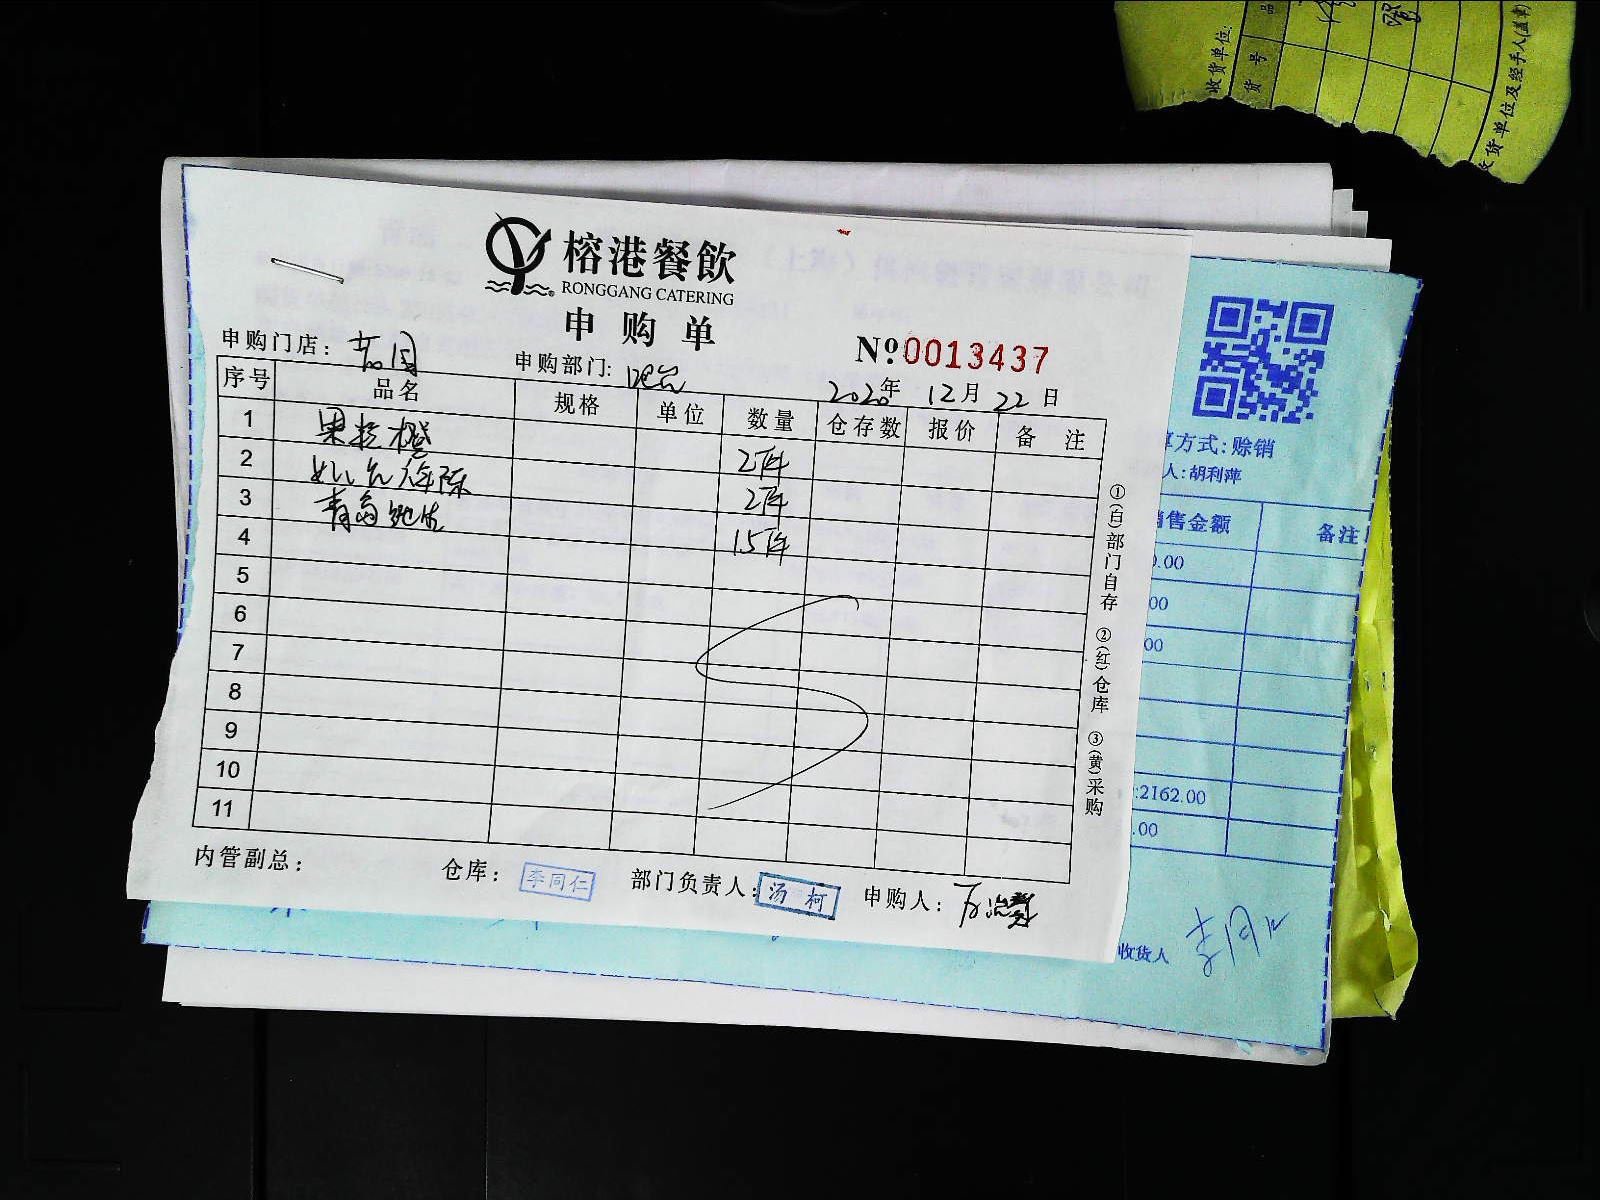 收货单位:
货号
品
收货单位及经手人(盖章)
榕港餐飲
RONGGANG CATERING
申购单
№ 0013437
申购门店:
申购部门: 吧台
2020年 12月 22日
序号 品名 规格 单位 数量 仓存数 报价 备注
1 果粒橙 2件
2 2件
3 青岛纯生 15件
4
5
6
7
8
9
10
11
①(白)部门自存 ②(红)仓库 ③(黄)采购
内管副总: 仓库: 李同仁 部门负责人: 汤柯 申购人:
算方式:赊销
人:胡利萍
销售金额 备注
0.00
00
00
:2162.00
.00
收货人 李同仁